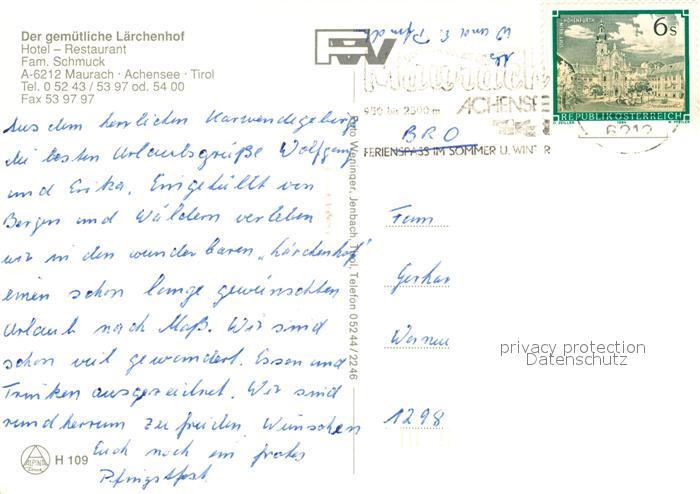 Der gemütliche Lärchenhof
Hotel – Restaurant
Fam. Schmuck
A-6212 Maurach · Achensee · Tirol
Tel. 0 52 43 / 53 97 od. 54 00
Fax 53 97 97
Aus dem herrlichen Karwendelgebirge
die besten Urlaubsgrüße Wolfgang
und Erika. Eingehüllt von
Bergen und Wäldern verleben
wir in den wunderbaren „Lärchenhof"
einen schon lange gewünschten
Urlaub nach Maß. Wir sind
schon viel gewandert. Essen und
Trinken ausgezeichnet. Wir sind
rundherum zufrieden. Wünschen
Euch noch ein frohes
Pfingstfest.
ALPINA
H 109
Foto Wieninger, Jenbach, Tirol, Telefon 0 52 44 / 2246
Maurach
950 bis 2500 m
ACHENSEE
FERIENSPASS IM SOMMER U. WINTER
6212
STIFT HOHENFURTH
6 S
REPUBLIK ÖSTERREICH
1984
BRD
Fam
Gerhar
Werner
1298
privacy protection
Datenschutz